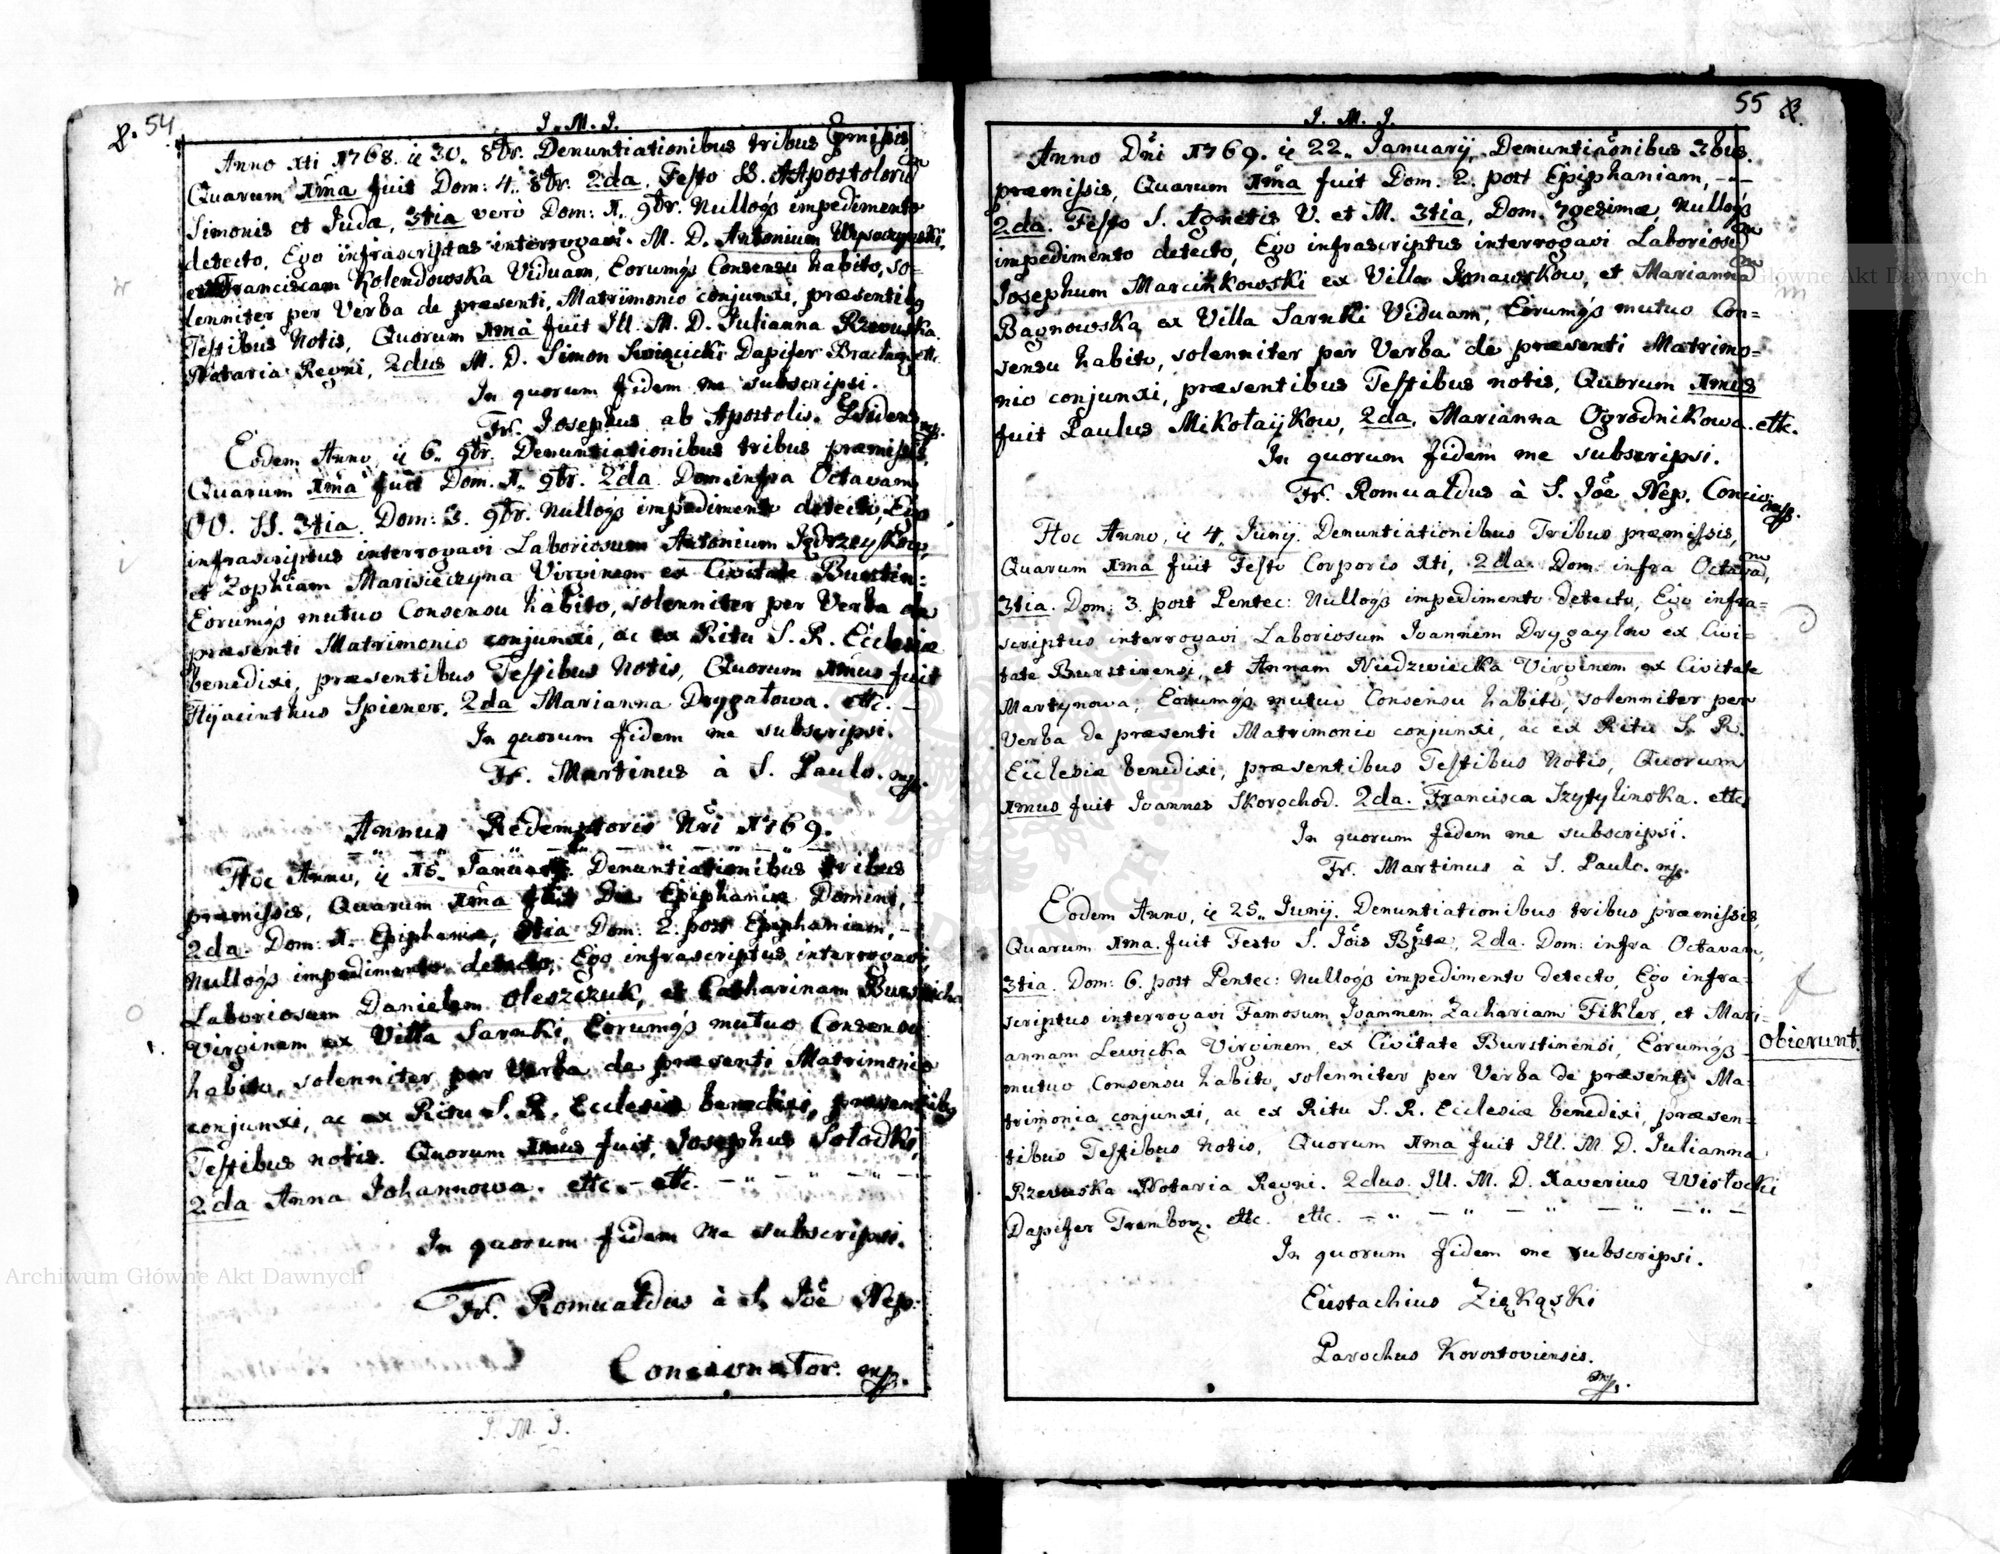 8. 54
J. M. J.
Anno Xti 1768. ie 30. 8br. Denuntiationibus tribus pmissis,
Quarum 1ma fuit Dom: 4. 8br. 2da. Festo SS. AApostoloru
Simonis et Judæ, 3tia vero Dom: 1. 9br. Nulloq3 impedimento
detecto, Ego infrascriptus interrogavi. M. D. Antonium
et Franciscam Kolendowska Viduam, Eorumq3 Consensu habito, so-
lenniter per Verba de præsenti, Matrimonio conjunxi, præsentibq
Testibus Notis, Quorum 1ma fuit Ill. M. D. Julianna Rzewuska
Notaria Regni, 2dus M. D. Simon Dapifer etc.
In quorum fidem me subscripsi.
Fr. Josephus ab Apostolis. mp.
Eodem Anno, ie 6. 9br. Denuntiationibus tribus præmissis,
Quarum 1ma fuit Dom. 1. 9br. 2da. Dom. infra Octavam
OO. SS. 3tia. Dom: 3. 9br. Nulloq3 impedimento detecto, Ego
infrascriptus interrogavi Laboriosum Antonium Jędrzeykow,
et Zophiam Marisieczyna Virginem ex Civitate Burstin:
Eorumq3 mutuo Consensu habito, solenniter per Verba de
præsenti Matrimonio conjunxi, ac ex Ritu S. R. Ecclesiæ
benedixi, præsentibus Testibus Notis, Quorum 1mus fuit
Hyacinthus Spiener. 2da Marianna Drygałowa. etc. -
In quorum fidem me subscripsi.
Fr. Martinus à S. Paulo. mp.
Annus Redemptoris Nri 1769.
Hoc Anno, ie 15. January. Denuntiationibus tribus
præmissis, Quarum 1ma fuit Die Epiphaniæ Domini,
2da. Dom: 1. Epiphaniæ, 3tia Dom: 2. post Epiphaniam, -
Nulloq3 impedimento detecto, Ego infrascriptus interrogavi,
Laboriosum Danielem Oleszczuk, et Catharinam
Virginem ex Villa Sarnki, Eorumq3 mutuo Consensu
habito, solenniter per Verba de præsenti Matrimonio
conjunxi, ac ex Ritu S. R. Ecclesiæ benedixi, præsentibq
Testibus notis. Quorum 1mus fuit, Josephus Sołodki,
2da Anna Johannowa. etc - etc.
In quorum fidem me subscripsi.
Fr. Romualdus à S. Joe Nep:
Concionator. mp.
J. M. J.
55 8.
J. M. J.
Anno Dni 1769. ie 22. January, Denuntiaonibus 3bus.
præmissis, Quarum 1ma fuit Dom. 2. post Epiphaniam, --
2da. Festo S. Agnetis V. et M. 3tia, Dom. 7gesimæ, Nulloq3
impedimento detecto, Ego infrascriptus interrogavi Laboriosu
Josephum Marcinkowski ex Villa Junawskow, et Marianna
Bagnowską ex Villa Sarnki Viduam, Eorumq3 mutuo Con=
sensu habito, solenniter per Verba de præsenti Matrimo=
nio conjunxi, præsentibus Testibus notis, Quorum 1mus
fuit Paulus Mikołaykow, 2da, Marianna Ogrodnikowa. etc.
In quorum fidem me subscripsi.
Fr. Romualdus à S. Joe Nep. Concio: mp.
Hoc Anno, ie 4. Juny. Denuntiationibus Tribus præmissis,
Quarum 1ma fuit Festo Corporis Xti, 2da. Dom: infra Octava,
3tia. Dom: 3. post Pentec: Nulloq3 impedimento detecto, Ego infra=
scriptus interrogavi Laboriosum Joannem Drygaylow ex Civi-
tate Burstinensi, et Annam Niedzwiecka Virginem ex Civitate
Martynowa; Eorumq3 mutuo Consensu habito, solenniter per
Verba de præsenti Matrimonio conjunxi, ac ex Ritu S. R.
Ecclesiæ benedixi, præsentibus Testibus Notis, Quorum
1mus fuit Joannes Skorochod. 2da. Francisca Szytylinska. etc.
In quorum fidem me subscripsi.
Fr. Martinus à S. Paulo. mp.
Eodem Anno, ie 25. Junij. Denuntiationibus tribus præmissis,
Quarum 1ma. fuit Festo S. Jois Bptæ, 2da. Dom: infra Octavam,
3tia. Dom: 6. post Pentec: Nulloq3 impedimento detecto, Ego infra-
scriptus interrogavi Famosum Joannem Zachariam Fikler, et Mari-
annam Lewicka Virginem, ex Civitate Burstinensi, Eorumq3 -
obierunt.
mutuo Consensu habito, solenniter per Verba de præsenti Ma-
trimonia conjunxi, ac ex Ritu S. R. Ecclesiæ benedixi, præsen-
tibus Testibus Notis, Quorum 1ma fuit Ill. M. D. Julianna
Rzewuska Notaria Regni. 2dus. Ill. M. D. Xaverius Wisłocki
Dapifer Trembow. etc. etc.
In quorum fidem me subscripsi.
Eustachius Ziąkąski
Parochus Korostoviensis.
mp.
Archiwum Główne Akt Dawnych
Główne Akt Dawnych